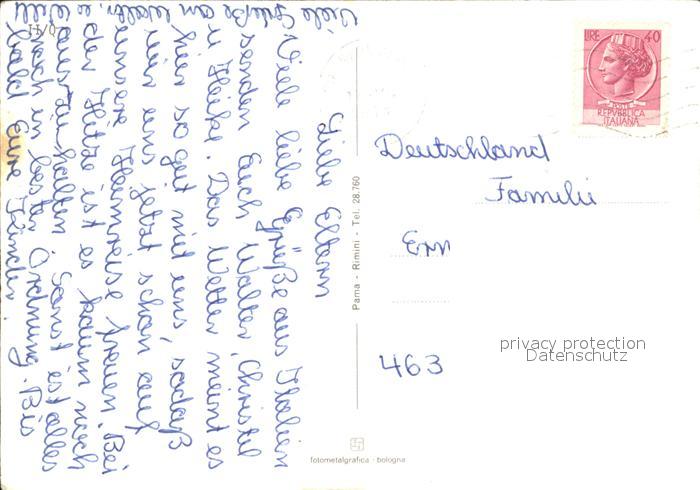 Liebe Eltern
Viele liebe Grüße aus Italien
senden Euch Walter, Christel
u Heike. Das Wetter meint es
hier so gut mit uns, sodaß
wir uns jetzt schon auf
unsere Heimreise freuen. Bei
der Hitze ist es kaum noch
auszuhalten. Sonst ist alles
noch in bester Ordnung. Bis
bald Eure Kinder.
Viele Grüße an Walter. u Willi
LIRE 40
POSTE
REPVBBLICA
ITALIANA
Deutschland
Familie
Ern
463
privacy protection
Datenschutz
Pama - Rimini - Tel. 28.760
fotometalgrafica - bologna